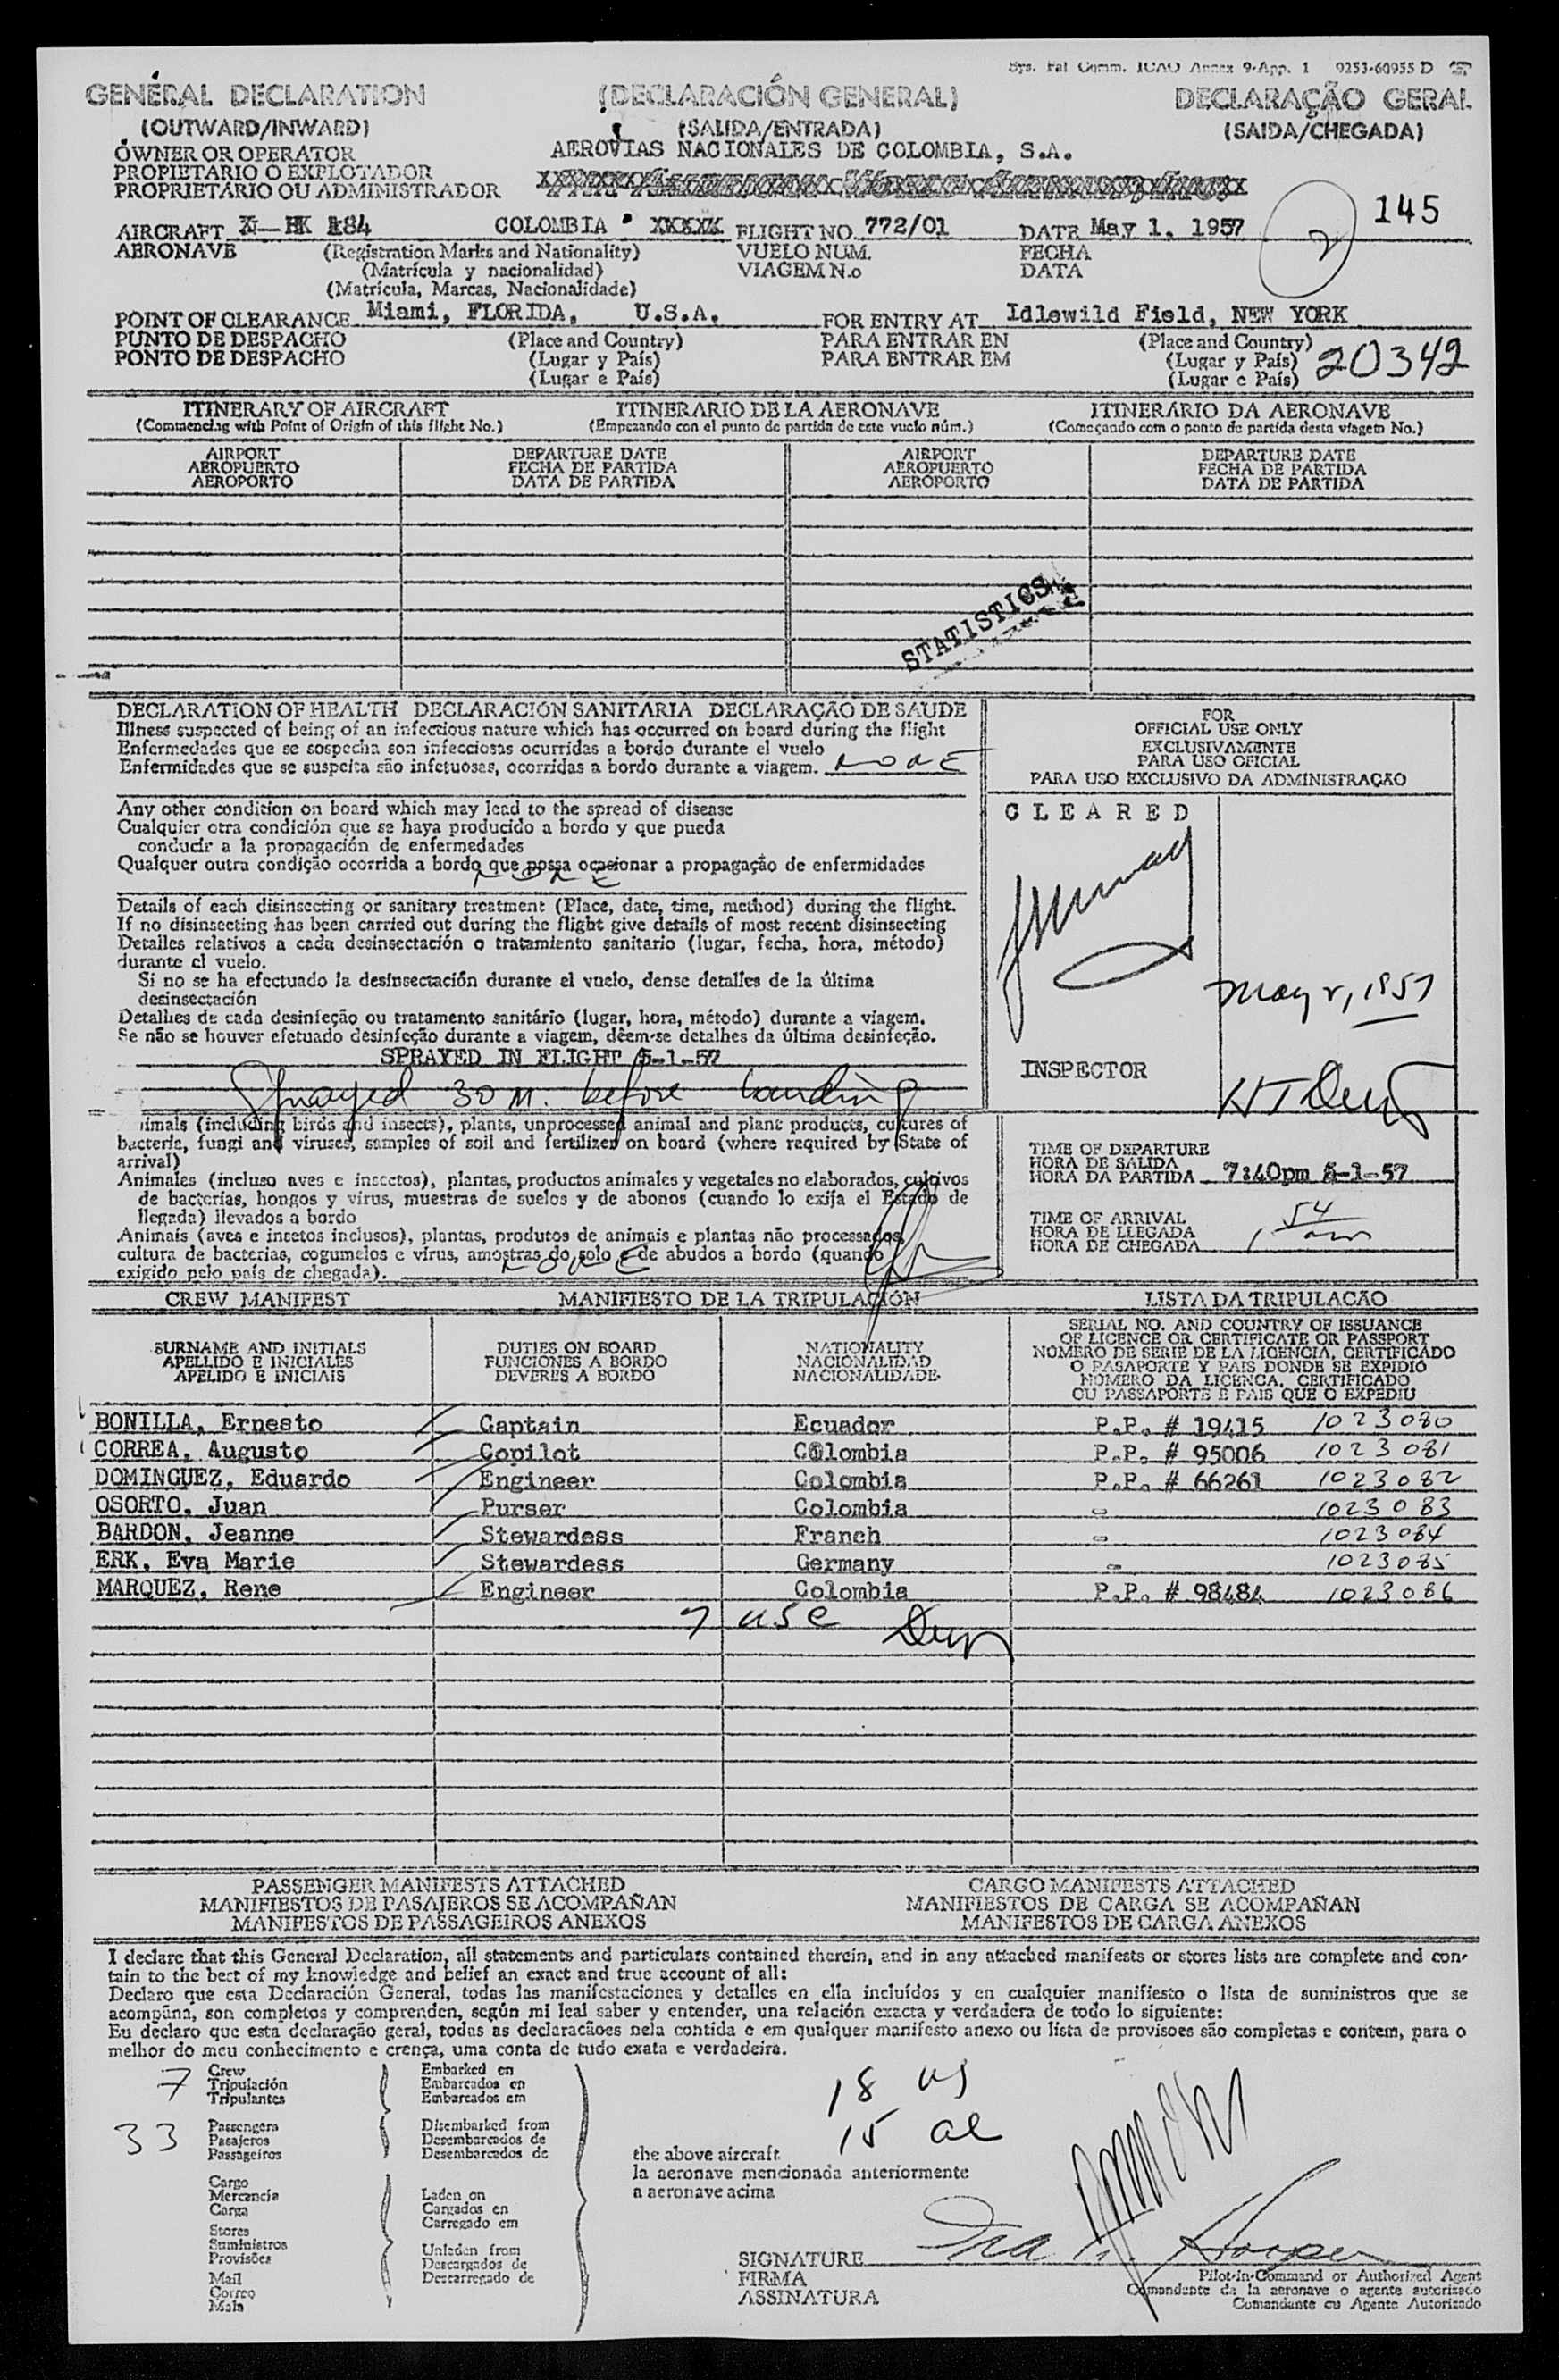 Sys. Fal Comm. ICAO Annex 9-App. 1 9253-60955 D
GENERAL DECLARATION (DECLARACIÓN GENERAL) DECLARAÇÃO GERAL
(OUTWARD/INWARD) (SALIDA/ENTRADA) (SAIDA/CHEGADA)
OWNER OR OPERATOR AEROVIAS NACIONALES DE COLOMBIA, S.A.
PROPIETARIO O EXPLOTADOR
PROPRIETÁRIO OU ADMINISTRADOR
145
2
AIRCRAFT HK 184 COLOMBIA XXXXX FLIGHT NO. 772/01 DATE May 1, 1957
AERONAVE (Registration Marks and Nationality) VUELO NUM. FECHA
(Matrícula y nacionalidad) VIAGEM N.o DATA
(Matrícula, Marcas, Nacionalidade)
POINT OF CLEARANCE Miami, FLORIDA, U.S.A. FOR ENTRY AT Idlewild Field, NEW YORK
PUNTO DE DESPACHO (Place and Country) PARA ENTRAR EN (Place and Country)
PONTO DE DESPACHO (Lugar y País) PARA ENTRAR EM (Lugar y País) 20342
(Lugar e País) (Lugar e País)
ITINERARY OF AIRCRAFT ITINERARIO DE LA AERONAVE ITINERÁRIO DA AERONAVE
(Commencing with Point of Origin of this flight No.) (Empezando con el punto de partida de este vuelo núm.) (Começando com o ponto de partida desta viagem No.)
AIRPORT DEPARTURE DATE AIRPORT DEPARTURE DATE
AEROPUERTO FECHA DE PARTIDA AEROPUERTO FECHA DE PARTIDA
AEROPORTO DATA DE PARTIDA AEROPORTO DATA DE PARTIDA
STATISTICS
DECLARATION OF HEALTH DECLARACIÓN SANITARIA DECLARAÇÃO DE SAUDE
Illness suspected of being of an infectious nature which has occurred on board during the flight
Enfermedades que se sospecha son infecciosas ocurridas a bordo durante el vuelo
Enfermidades que se suspeita são infetuosas, ocorridas a bordo durante a viagem. NONE
Any other condition on board which may lead to the spread of disease
Cualquier otra condición que se haya producido a bordo y que pueda
conducir a la propagación de enfermedades
Qualquer outra condição ocorrida a bordo que possa ocasionar a propagação de enfermidades
NONE
Details of each disinsecting or sanitary treatment (Place, date, time, method) during the flight.
If no disinsecting has been carried out during the flight give details of most recent disinsecting
Detalles relativos a cada desinsectación o tratamiento sanitario (lugar, fecha, hora, método)
durante el vuelo.
Si no se ha efectuado la desinsectación durante el vuelo, dense detalles de la última
desinsectación
Detalhes de cada desinfeção ou tratamento sanitário (lugar, hora, método) durante a viagem.
Se não se houver efetuado desinfeção durante a viagem, dêem-se detalhes da última desinfeção.
SPRAYED IN FLIGHT 5-1-57
Sprayed 30 m. before landing
imals (including birds and insects), plants, unprocessed animal and plant products, cultures of
bacteria, fungi and viruses, samples of soil and fertilizer on board (where required by State of
arrival)
Animales (incluso aves e insectos), plantas, productos animales y vegetales no elaborados, cultivos
de bacterias, hongos y virus, muestras de suelos y de abonos (cuando lo exija el Estado de
llegada) llevados a bordo
Animais (aves e insetos inclusos), plantas, produtos de animais e plantas não processados,
cultura de bacterias, cogumelos e virus, amostras do solo e de abudos a bordo (quando
exigido pelo país de chegada). NONE
FOR
OFFICIAL USE ONLY
EXCLUSIVAMENTE
PARA USO OFICIAL
PARA USO EXCLUSIVO DA ADMINISTRAÇÃO
CLEARED
May 2, 1957
INSPECTOR
TIME OF DEPARTURE
HORA DE SALIDA
HORA DA PARTIDA 7:40pm 5-1-57
TIME OF ARRIVAL
HORA DE LLEGADA
HORA DE CHEGADA 1 54 am
CREW MANIFEST MANIFIESTO DE LA TRIPULACIÓN LISTA DA TRIPULACÃO
SURNAME AND INITIALS DUTIES ON BOARD NATIONALITY SERIAL NO. AND COUNTRY OF ISSUANCE
APELLIDO E INICIALES FUNCIONES A BORDO NACIONALIDAD OF LICENCE OR CERTIFICATE OR PASSPORT
APELIDO E INICIAIS DEVERES A BORDO NACIONALIDADE NÚMERO DE SERIE DE LA LICENCIA, CERTIFICADO
O PASAPORTE Y PAIS DONDE SE EXPIDIÓ
NÚMERO DA LICENCA, CERTIFICADO
OU PASSAPORTE E PAIS QUE O EXPEDIU
BONILLA, Ernesto Captain Ecuador P.P. # 19415 1023080
CORREA, Augusto Copilot Colombia P.P. # 95006 1023081
DOMINGUEZ, Eduardo Engineer Colombia P.P. # 66261 1023082
OSORTO, Juan Purser Colombia - 1023083
BARDON, Jeanne Stewardess Franch - 1023084
ERK, Eva Marie Stewardess Germany - 1023085
MARQUEZ, Rene Engineer Colombia P.P. # 98484 1023086
7 USC
PASSENGER MANIFESTS ATTACHED CARGO MANIFESTS ATTACHED
MANIFIESTOS DE PASAJEROS SE ACOMPAÑAN MANIFIESTOS DE CARGA SE ACOMPAÑAN
MANIFESTOS DE PASSAGEIROS ANEXOS MANIFESTOS DE CARGA ANEXOS
I declare that this General Declaration, all statements and particulars contained therein, and in any attached manifests or stores lists are complete and con-
tain to the best of my knowledge and belief an exact and true account of all:
Declaro que esta Declaración General, todas las manifestaciones y detalles en ella incluídos y en cualquier manifiesto o lista de suministros que se
acompaña, son completos y comprenden, según mi leal saber y entender, una relación exacta y verdadera de todo lo siguiente:
Eu declaro que esta declaração geral, todas as declaracãoes nela contida e em qualquer manifesto anexo ou lista de provisoes são completas e contem, para o
melhor do meu conhecimento e crença, uma conta de tudo exata e verdadeira.
7 Crew Embarked en
Tripulación Embarcados en
Tripulantes Embarcados em
18 us
33 Passengers Disembarked from
Pasajeros Desembarcados de
Passageiros Desembarcados de
15 al
the above aircraft
la aeronave mencionada anteriormente
a aeronave acima
Cargo
Mercancía Laden on
Carga Cargados en
Carregado em
Stores
Suministros Unladen from
Provisões Descargados de
Mail Descarregado de
Correo
Mala
SIGNATURE Hooper
FIRMA Pilot-in-Command or Authorized Agent
ASSINATURA Comandante de la aeronave o agente autorizado
Comandante ou Agente Autorizado